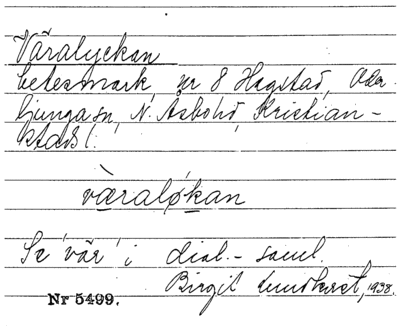 Väralyckan
betesmark, nr 8 Hagstad, Oder-
ljunga sn, N. Åsbohd, Kristian-
stads l.
væraløkan
Se 'vär' i dial.-saml.
Birgit Lundkvist, 1938.
Nr 5499.